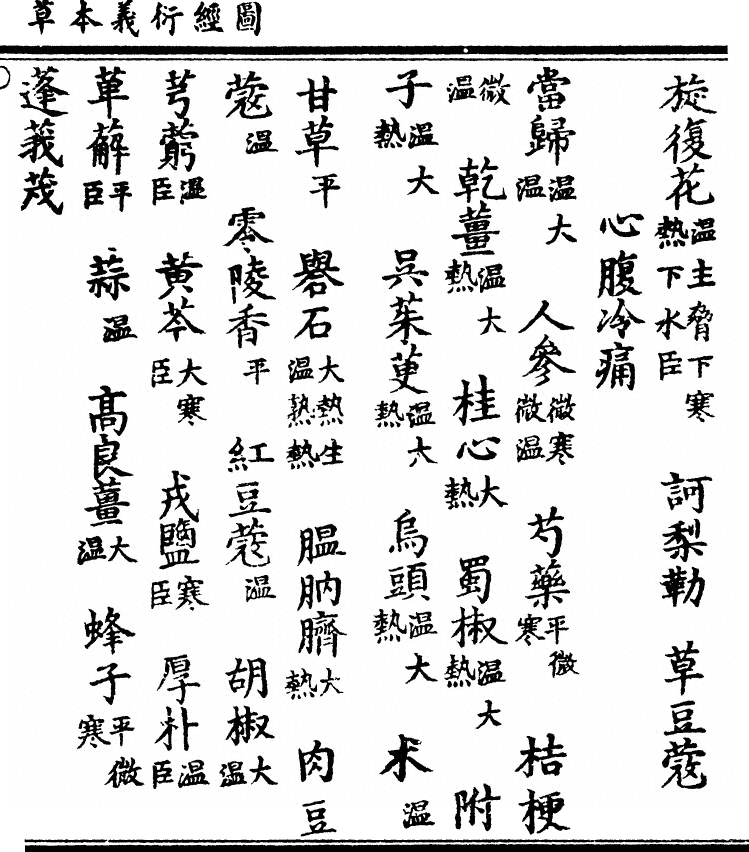 圖經衍義本草
旋復花 溫主脅下寒熱下水臣 訶梨勒 草豆蔻
心腹冷痛
當歸 溫大溫 人參 微寒微溫 芍藥 平微寒 桔梗
微溫 乾薑 溫大熱 桂心 大熱 蜀椒 溫大熱 附
子 溫大熱 吳茱萸 溫大熱 烏頭 溫大熱 术 溫
甘草 平 礜石 大熱生溫熟熱 膃肭臍 大熱 肉豆
蔻 溫 零陵香 平 紅豆蔻 溫 胡椒 大溫
芎藭 溫臣 黃芩 大寒臣 戎鹽 寒臣 厚朴 溫臣
萆薢 平臣 蒜 溫 高良薑 大溫 蜂子 平微寒
蓬莪茂